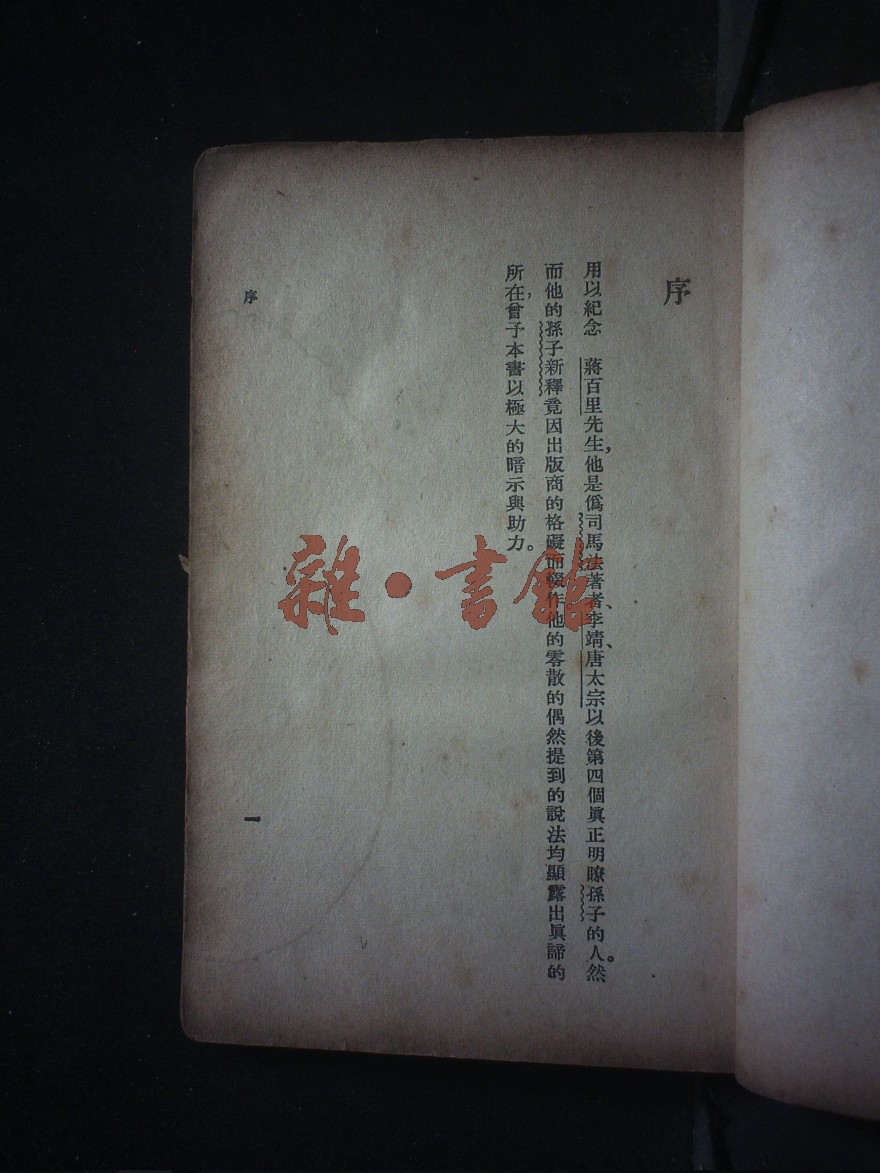 序
用以紀念　蔣百里先生，他是僞司馬法著者、李靖、唐太宗以後第四個眞正明瞭孫子的人。然
而他的孫子新釋竟因出版商的格礙而輟作他的零散的偶然提到的說法均顯露出眞諦的
所在，曾予本書以極大的暗示與助力。
序
一
雜·書館